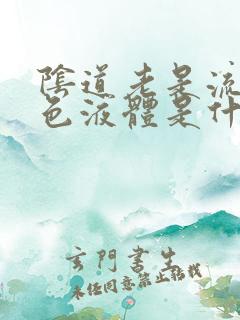 陰道老是流
色液體是什
玄門書生
未經同意禁止転載